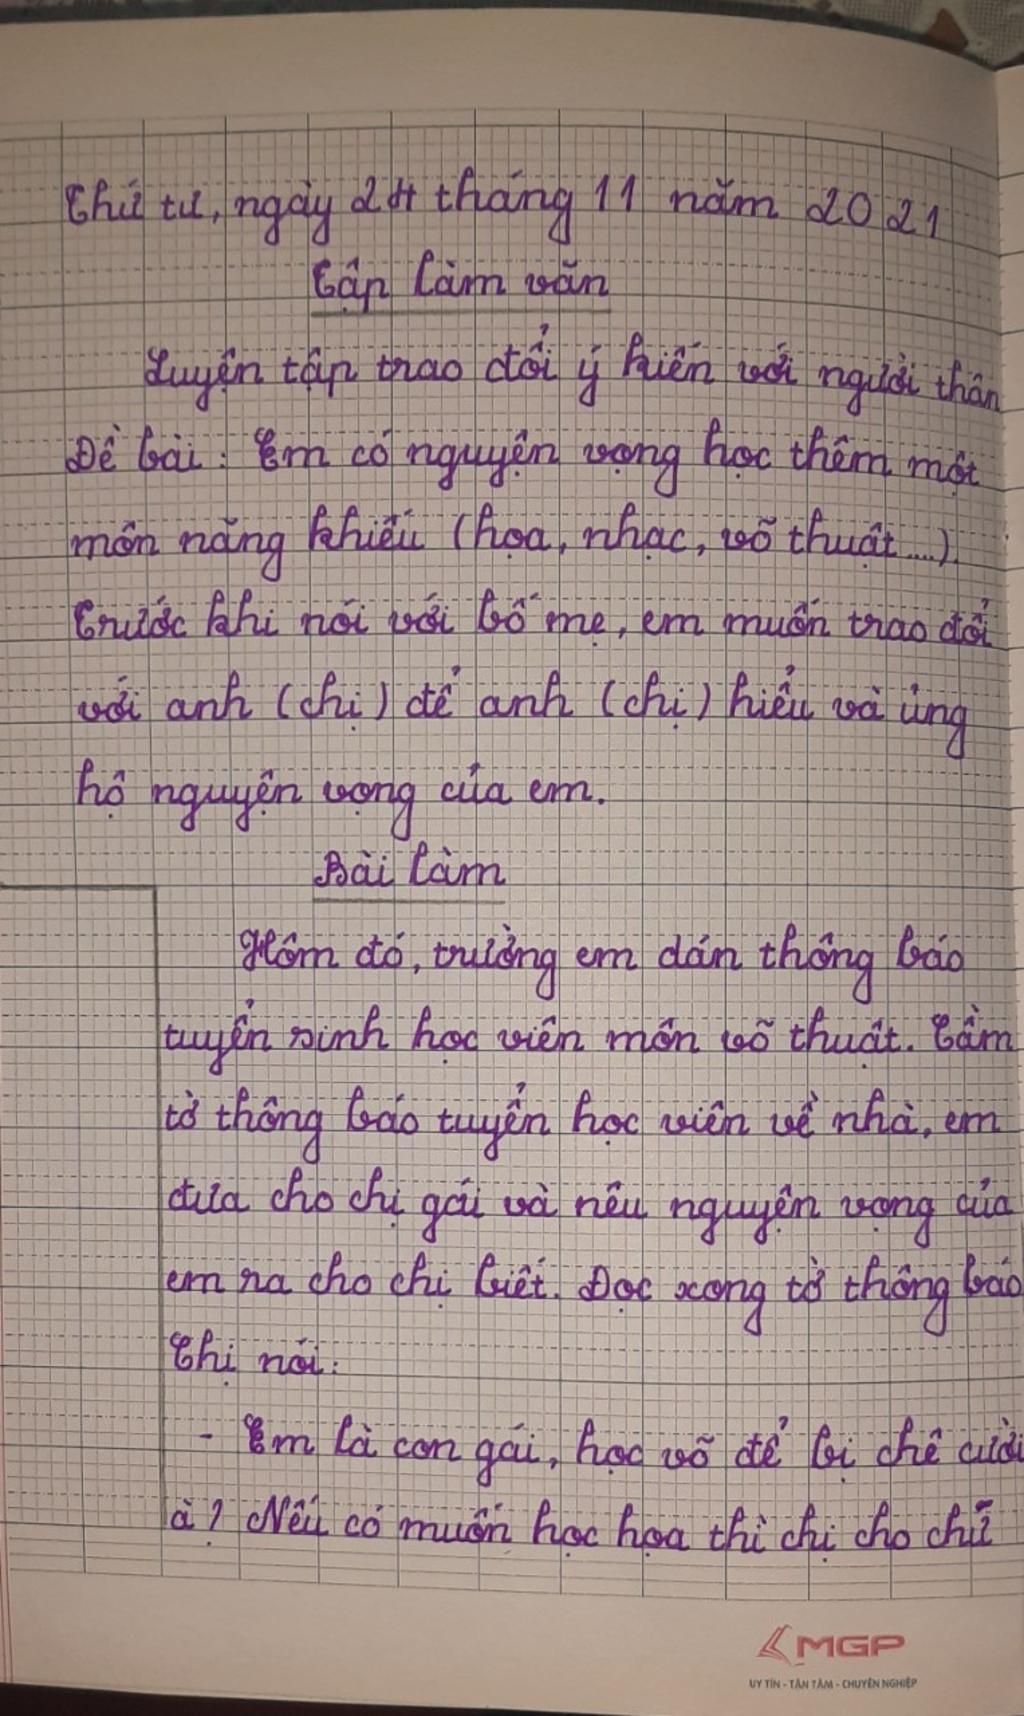 Thứ tư, ngày 24 tháng 11 năm 2021
Tập làm văn
Luyện tập trao đổi ý kiến với người thân
Đề bài: Em có nguyện vọng học thêm một
môn năng khiếu (họa, nhạc, võ thuật....).
Trước khi nói với bố mẹ, em muốn trao đổi
với anh (chị) để anh (chị) hiểu và ủng
hộ nguyện vọng của em.
Bài làm
Hôm đó, trường em dán thông báo
tuyển sinh học viên môn võ thuật. Cầm
tờ thông báo tuyển học viên về nhà, em
đưa cho chị gái và nêu nguyện vọng của
em ra cho chị biết. Đọc xong tờ thông báo
Chị nói:
- Em là con gái, học võ để bị chê cười
à? Nếu có muốn học họa thì chị cho chữ
MGP
UY TÍN - TẬN TÂM - CHUYÊN NGHIỆP